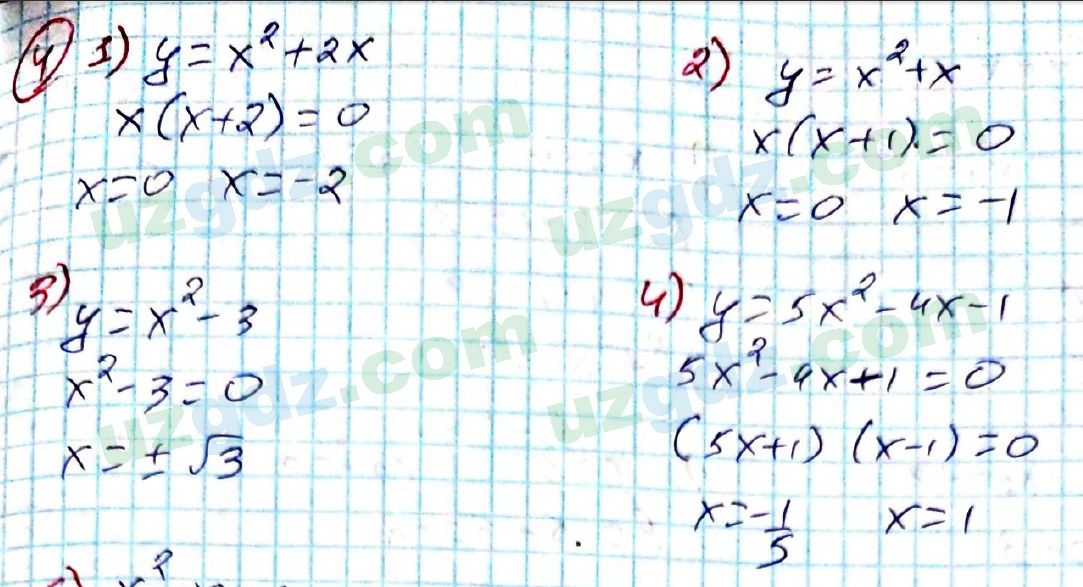 4) 1) y = x² + 2x
x(x+2) = 0
x = 0 x = -2
2) y = x² + x
x(x+1) = 0
x = 0 x = -1
3) y = x² - 3
x² - 3 = 0
x = ± √3
4) y = 5x² - 4x - 1
5x² - 4x + 1 = 0
(5x+1) (x-1) = 0
x = -1/5 x = 1
uzgdz.com
uzgdz.com
uzgdz.com
uzgdz.com